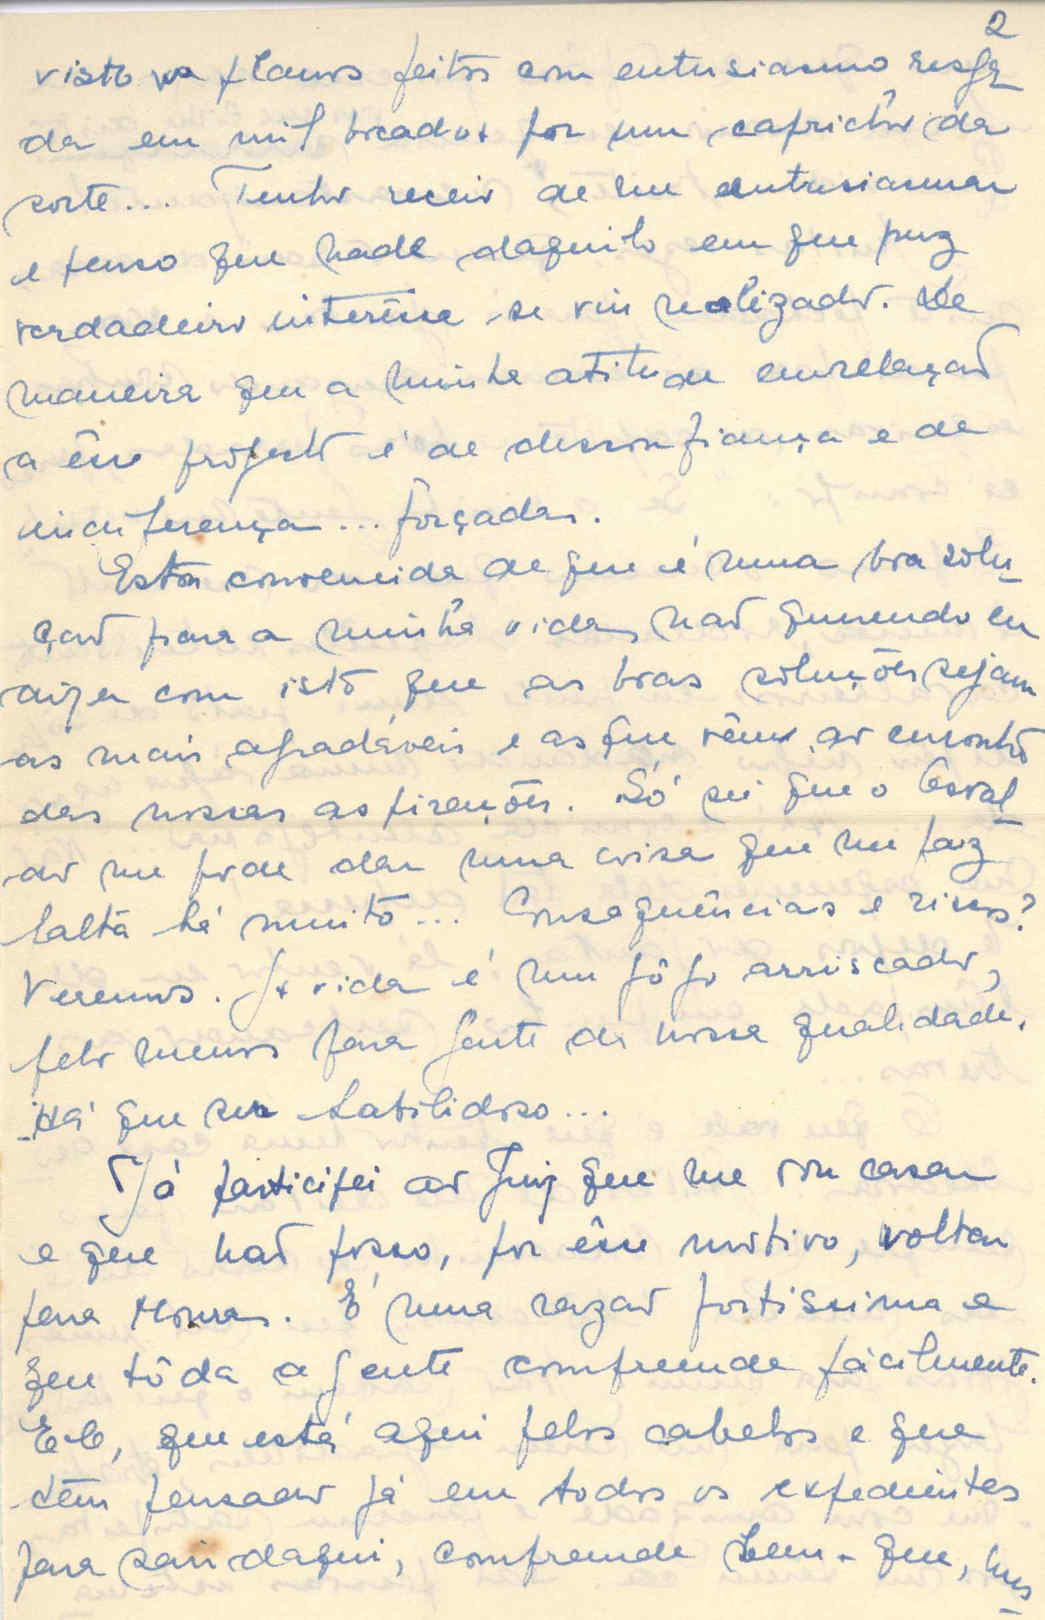 2
visto os planos feitos com entusiasmo
da em mil bocados por um capricho da
sorte... Tenho receio de me entusiasmar
e penso que nada daquilo em que puz
verdadeiro interêsse se viu realizado. De
maneira que a minha atitude em relação
a êsse projecto é de desconfiança e de
indiferença... forçadas.
Estou convencida de que é uma boa solu_
ção para a minha vida, não querendo eu
dizer com isto que as boas soluções sejam
as mais agradáveis e as que vêm ao encontro
das nossas aspirações. Só sei que o
do me pode dar uma coisa que me faz
falta há muito... Consequências e riscos?
Veremos. A vida é um jôgo arriscado,
pelo menos para gente da nossa qualidade.
Há que ser habilidoso...
Já participei ao que me vou casar
e que não posso, por êsse motivo, voltar
para Moura. É uma razão fortissima e
que tôda a gente compreende fàcilmente.
Ele, que está aqui pelos cabelos e que
têm pensado já em todos os expedientes
para sair daqui, compreende bem que,